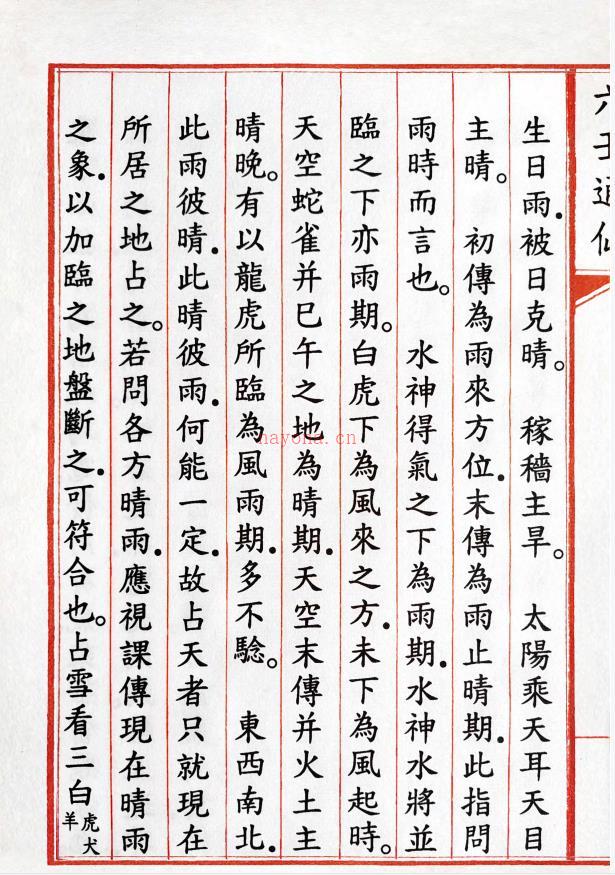 六壬通仙
生日雨.被日克晴。 稼穡主旱。 太陽乘天耳天目
主晴。 初傳為雨來方位.末傳為雨止晴期.此指問
雨時而言也。 水神得氣之下為雨期.水神水將並
臨之下亦雨期。白虎下為風來之方.未下為風起時。
天空蛇雀并巳午之地為晴期.天空末傳并火土主
晴晚。有以龍虎所臨為風雨期.多不驗。 東西南北.
此雨彼晴.此晴彼雨.何能一定.故占天者只就現在
所居之地占之。若問各方晴雨.應視課傳現在晴雨
之象.以加臨之地盤斷之.可符合也。占雪看三白虎犬羊
nayona.cn